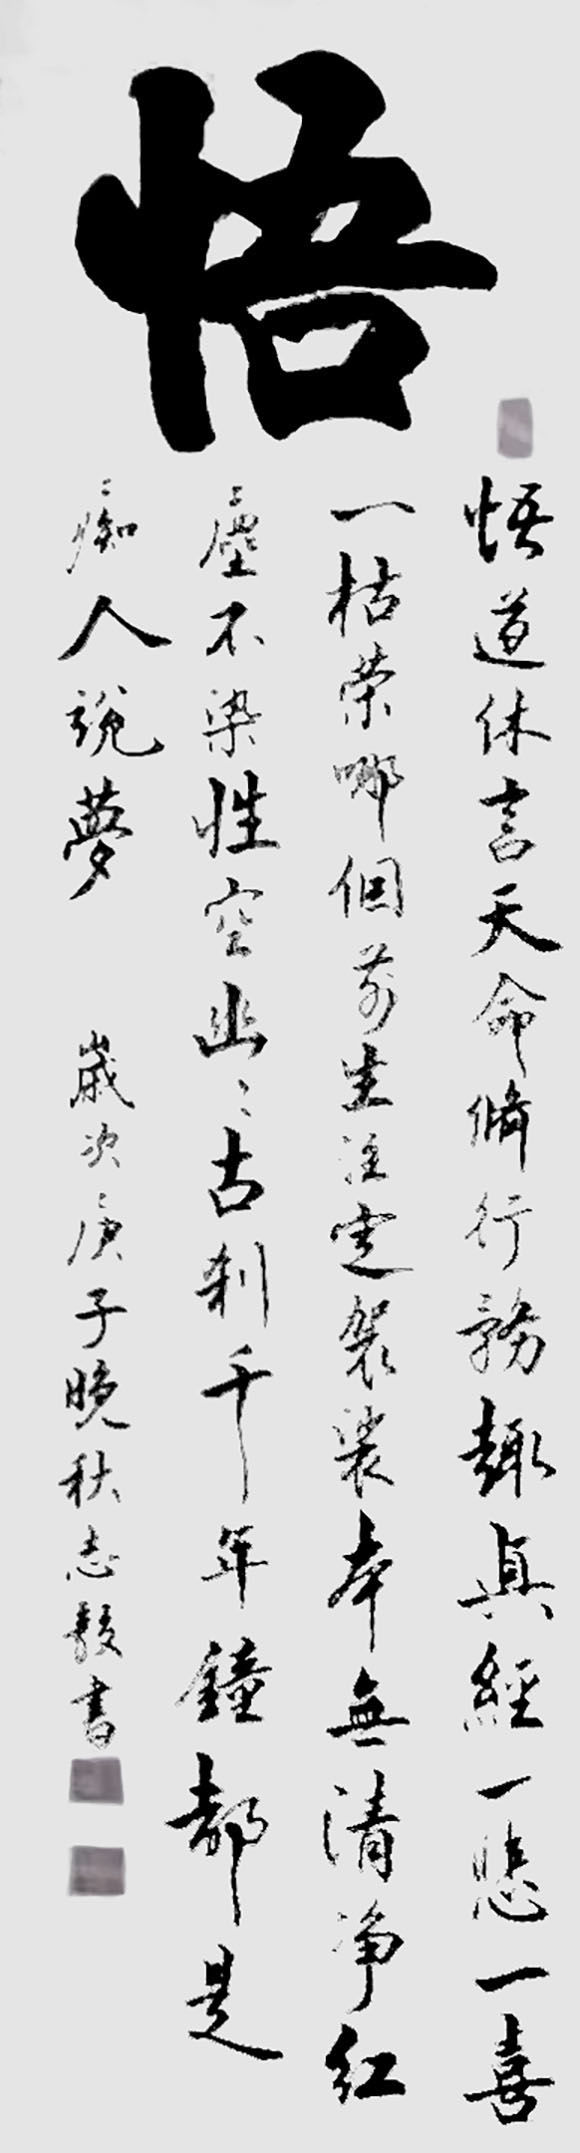 悟
悟道休言天命修行務趣真經一悲一喜
一枯榮哪個前生注定袈裟本無清净紅
塵不染性空幽〻古刹千年鐘都是
痴人說夢
歲次庚子晚秋志毅書